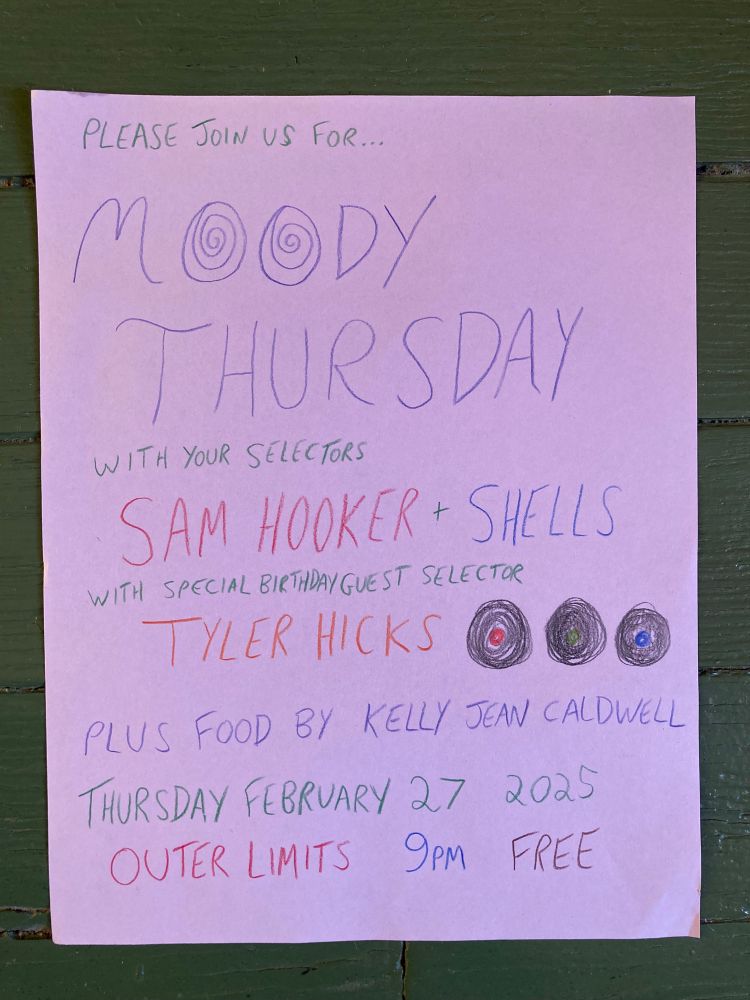 PLEASE JOIN US FOR...
MOODY
THURSDAY
WITH YOUR SELECTORS
SAM HOOKER + SHELLS
WITH SPECIAL BIRTHDAY GUEST SELECTOR
TYLER HICKS
PLUS FOOD BY KELLY JEAN CALDWELL
THURSDAY FEBRUARY 27 2025
OUTER LIMITS 9PM FREE